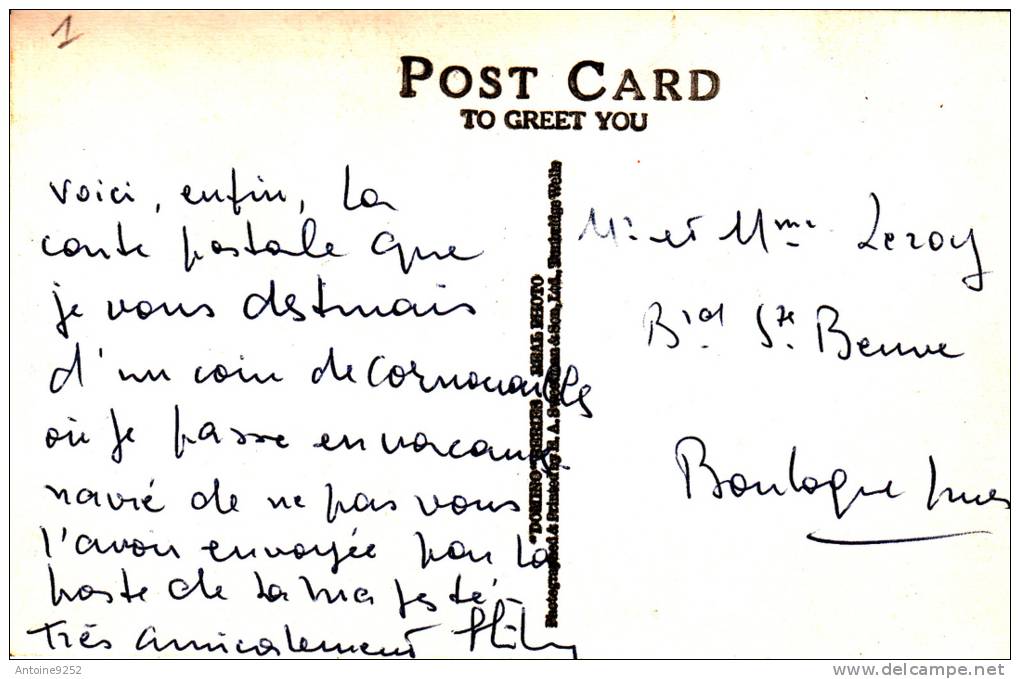 1
POST CARD
TO GREET YOU
voici, enfin, la
carte postale que
je vous destinais
d'un coin de Cornouailles
où je passe en vacances
navié de ne pas vous
l'avoir envoyée par la
poste de Sa Majesté.
très amicalement
"DOMINO" SERIES REAL PHOTO
Photographed & Printed by H. A. & Son, Ltd., Tunbridge Wells
Mr et Mme Leroy
Bld Ste Beuve
Boulogne s/mer
Antoine9252
delcampe.net